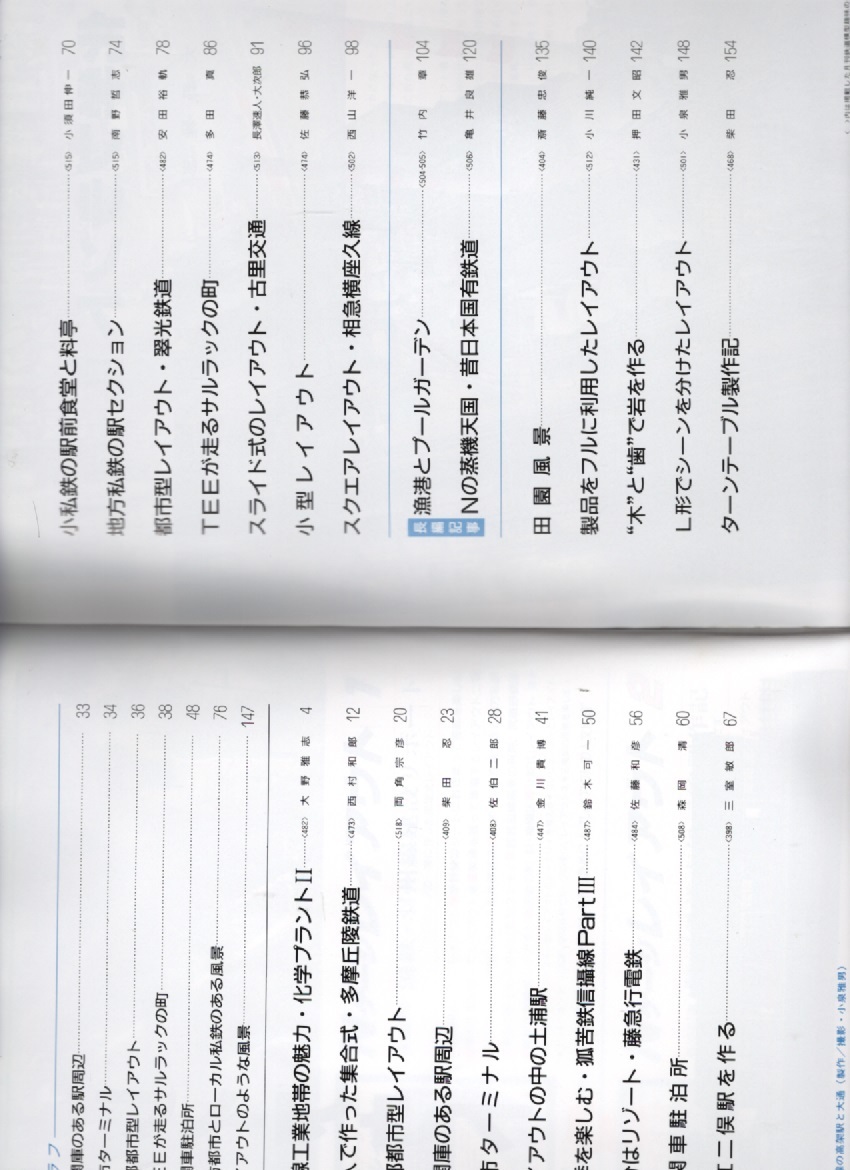 ラフ
庫のある駅周辺……33
ターミナル……34
都市型レイアウト……36
Eが走るサルラックの町……38
車駐泊所……48
都市とローカル私鉄のある風景……76
アウトのような風景……147
工業地帯の魅力・化学プラントⅡ……〈482〉 大野雅志 4
で作った集合式・多摩丘陵鉄道……〈473〉 西村和郎 12
都市型レイアウト……〈518〉 両角宗彦 20
庫のある駅周辺……〈409〉 柴田忍 23
ターミナル……〈408〉 佐伯二郎 28
アウトの中の土浦駅……〈447〉 金川貴博 41
を楽しむ・狐苦鉄信攝線PartⅢ……〈487〉 鈴木可一 50
はリゾート・藤急行電鉄……〈484〉 佐藤和彦 56
車駐泊所……〈508〉 森岡清 60
二俣駅を作る……〈398〉 三室敏郎 67
の高架駅と大通（製作／撮影・小泉雅男）
小私鉄の駅前食堂と料亭……〈515〉 小須田伸一 70
地方私鉄の駅セクション……〈515〉 南野哲志 74
都市型レイアウト・翠光鉄道……〈482〉 安田裕軌 78
TEEが走るサルラックの町……〈474〉 多田真 86
スライド式のレイアウト・古里交通……〈513〉 長澤速人・大次郎 91
小型レイアウト……〈474〉 佐藤恭弘 96
スクエアレイアウト・相急横座久線……〈502〉 西山洋一 98
長編記事
漁港とプールガーデン……〈504·505〉 竹内章 104
Nの蒸機天国・昔日本国有鉄道……〈506〉 亀井良雄 120
田園風景……〈404〉 斎藤忠俊 135
製品をフルに利用したレイアウト……〈512〉 小川純一 140
“木”と“歯”で岩を作る……〈431〉 押田文昭 142
L形でシーンを分けたレイアウト……〈501〉 小泉雅男 148
ターンテーブル製作記……〈468〉 柴田忍 154
〉内は掲載した月刊鉄道模型趣味の